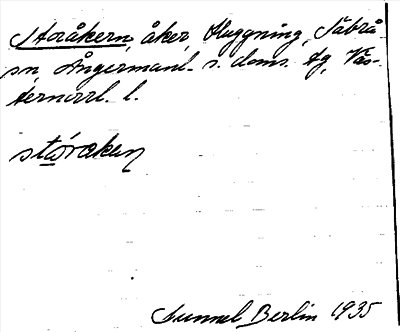 Storåkern, åker, Huggning, Säbrå
sn Ångermanl. s. doms. tg, Väs-
ternorrl. l.
stóråkeṇ
Gunnel Berlin 1935